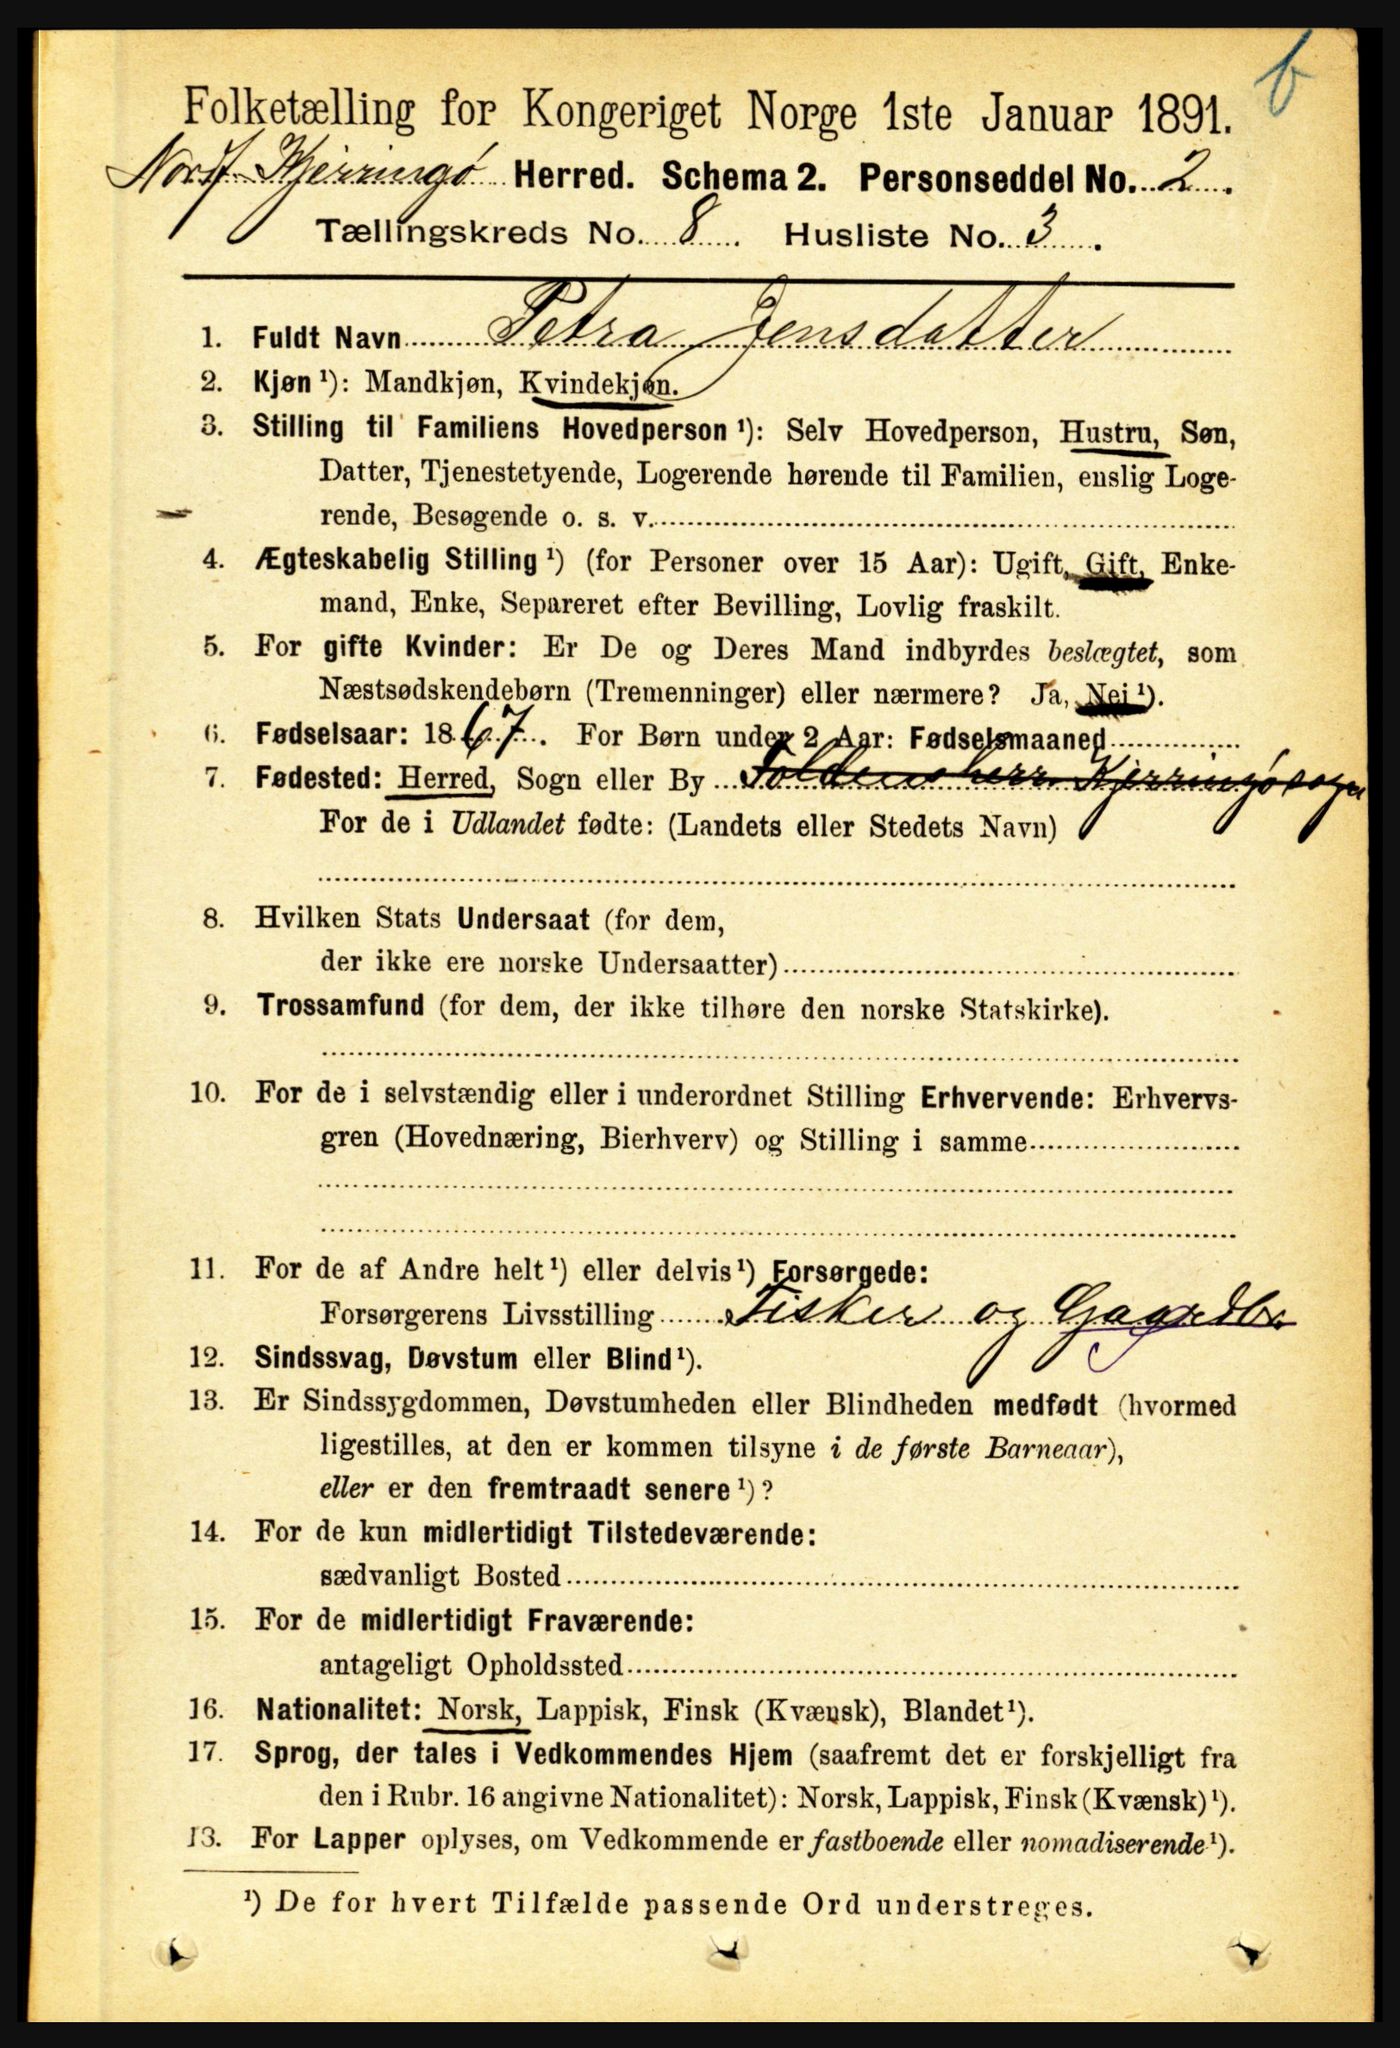 b
Folketælling for Kongeriget Norge 1ste Januar 1891.
Kjerringø Herred. Schema 2. Personseddel No. 2.
Tællingskreds No. 8. Husliste No. 3.
1. Fuldt Navn Petra Jensdatter
2. Kjøn ¹): Mandkjøn, Kvindekjøn.
3. Stilling til Familiens Hovedperson ¹): Selv Hovedperson, Hustru, Søn,
Datter, Tjenestetyende, Logerende hørende til Familien, enslig Loge-
rende, Besøgende o. s. v.
4. Ægteskabelig Stilling ¹) (for Personer over 15 Aar): Ugift, Gift, Enke-
mand, Enke, Separeret efter Bevilling, Lovlig fraskilt.
5. For gifte Kvinder: Er De og Deres Mand indbyrdes beslægtet, som
Næstsødskendebørn (Tremenninger) eller nærmere? Ja, Nei ¹).
6. Fødselsaar: 1867. For Børn under 2 Aar: Fødselsmaaned
7. Fødested: Herred, Sogn eller By Foldens herr Kjerringø sogn
For de i Udlandet fødte: (Landets eller Stedets Navn)
8. Hvilken Stats Undersaat (for dem,
der ikke ere norske Undersaatter)
9. Trossamfund (for dem, der ikke tilhøre den norske Statskirke).
10. For de i selvstændig eller i underordnet Stilling Erhvervende: Erhvervs-
gren (Hovednæring, Bierhverv) og Stilling i samme
11. For de af Andre helt ¹) eller delvis ¹) Forsørgede:
Forsørgerens Livsstilling Fisker og
12. Sindssvag, Døvstum eller Blind ¹).
13. Er Sindssygdommen, Døvstumheden eller Blindheden medfødt (hvormed
ligestilles, at den er kommen tilsyne i de første Barneaar),
eller er den fremtraadt senere ¹)?
14. For de kun midlertidigt Tilstedeværende:
sædvanligt Bosted
15. For de midlertidigt Fraværende:
antageligt Opholdssted
16. Nationalitet: Norsk, Lappisk, Finsk (Kvænsk), Blandet ¹).
17. Sprog, der tales i Vedkommendes Hjem (saafremt det er forskjelligt fra
den i Rubr. 16 angivne Nationalitet): Norsk, Lappisk, Finsk (Kvænsk) ¹).
13. For Lapper oplyses, om Vedkommende er fastboende eller nomadiserende ¹).
¹) De for hvert Tilfælde passende Ord understreges.